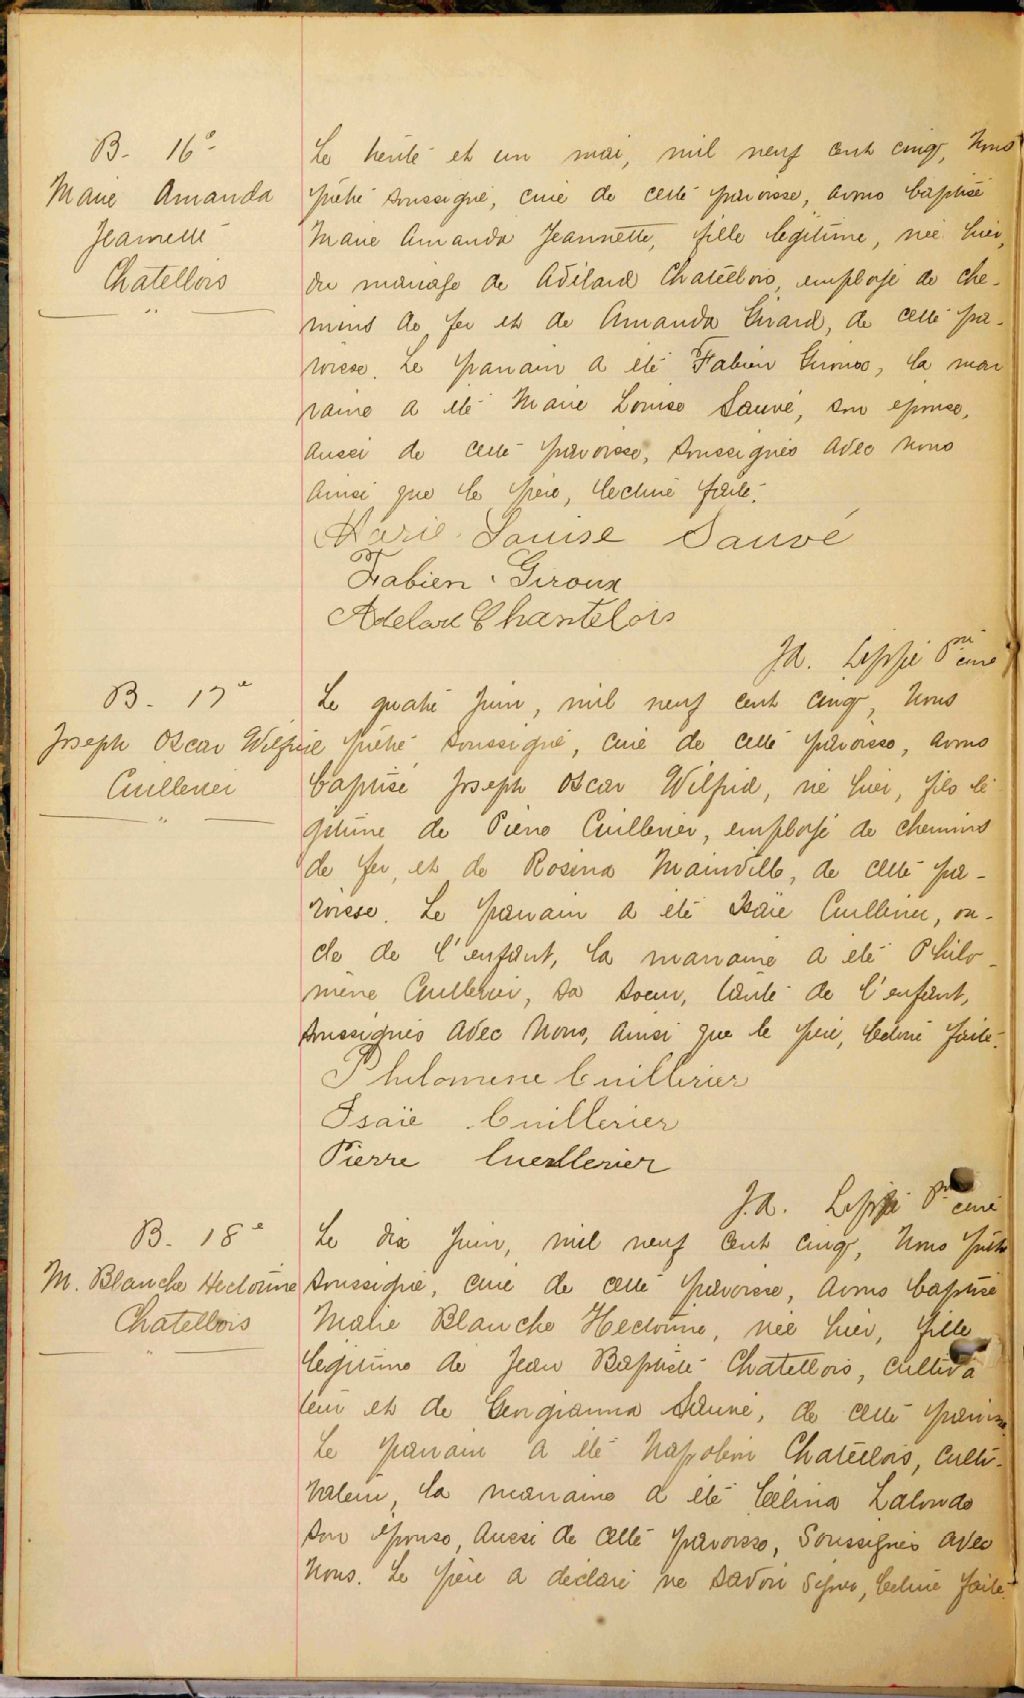 B. 16e
Marie Amanda
Jeannette
Chatellois
Le trente et un mai, mil neuf cent cinq, Nous
prêtre soussigné, curé de cette paroisse, avons baptisé
Marie Amanda Jeannette, fille légitime, née hier,
du mariage de Adélard Chatellois, employé de che-
mins de fer et de Amanda Girard, de cette pa-
roisse. Le parrain a été Fabien Giroux, la mar
raine a été Marie Louise Sauvé, son épouse,
aussi de cette paroisse, soussignés avec nous
ainsi que le père, lecture faite.
Marie Louise Sauvé
Fabien Giroux
Adelard Chantelois
J.A. Lippé Ptre curé
B. 17e
Joseph Oscar Wilfrid
Cuillerier
Le quatre juin, mil neuf cent cinq, Nous
prêtre soussigné, curé de cette paroisse, avons
baptisé Joseph Oscar Wilfrid, né hier, fils lé
gitime de Pierre Cuillerier, employé de chemins
de fer, et de Rosina Mainville, de cette pa-
roisse. Le parrain a été Isaïe Cuillerier, on-
cle de l'enfant, la marraine a été Philo-
mène Cuillerier, sa soeur, tante de l'enfant,
soussignés avec Nous, ainsi que le père, lecture faite.
Philomene Cuillerier
Isaïe Cuillerier
Pierre Cuillerier
J.A. Lippé Ptre curé
B. 18e
M. Blanche Hectorine
Chatellois
Le dix juin, mil neuf cent cinq, Nous prêtre
soussigné, curé de cette paroisse, avons baptisé
Marie Blanche Hectorine, née hier, fille
légitime de Jean Baptiste Chatellois, cultiva
teur et de Georgianna Sauvé, de cette paroisse.
Le parrain a été Napoléon Chatellois, culti-
vateur, la marraine a été Célina Lalonde
son épouse, aussi de cette paroisse, soussignés avec
Nous. Le père a déclaré ne savoir signer, lecture faite.